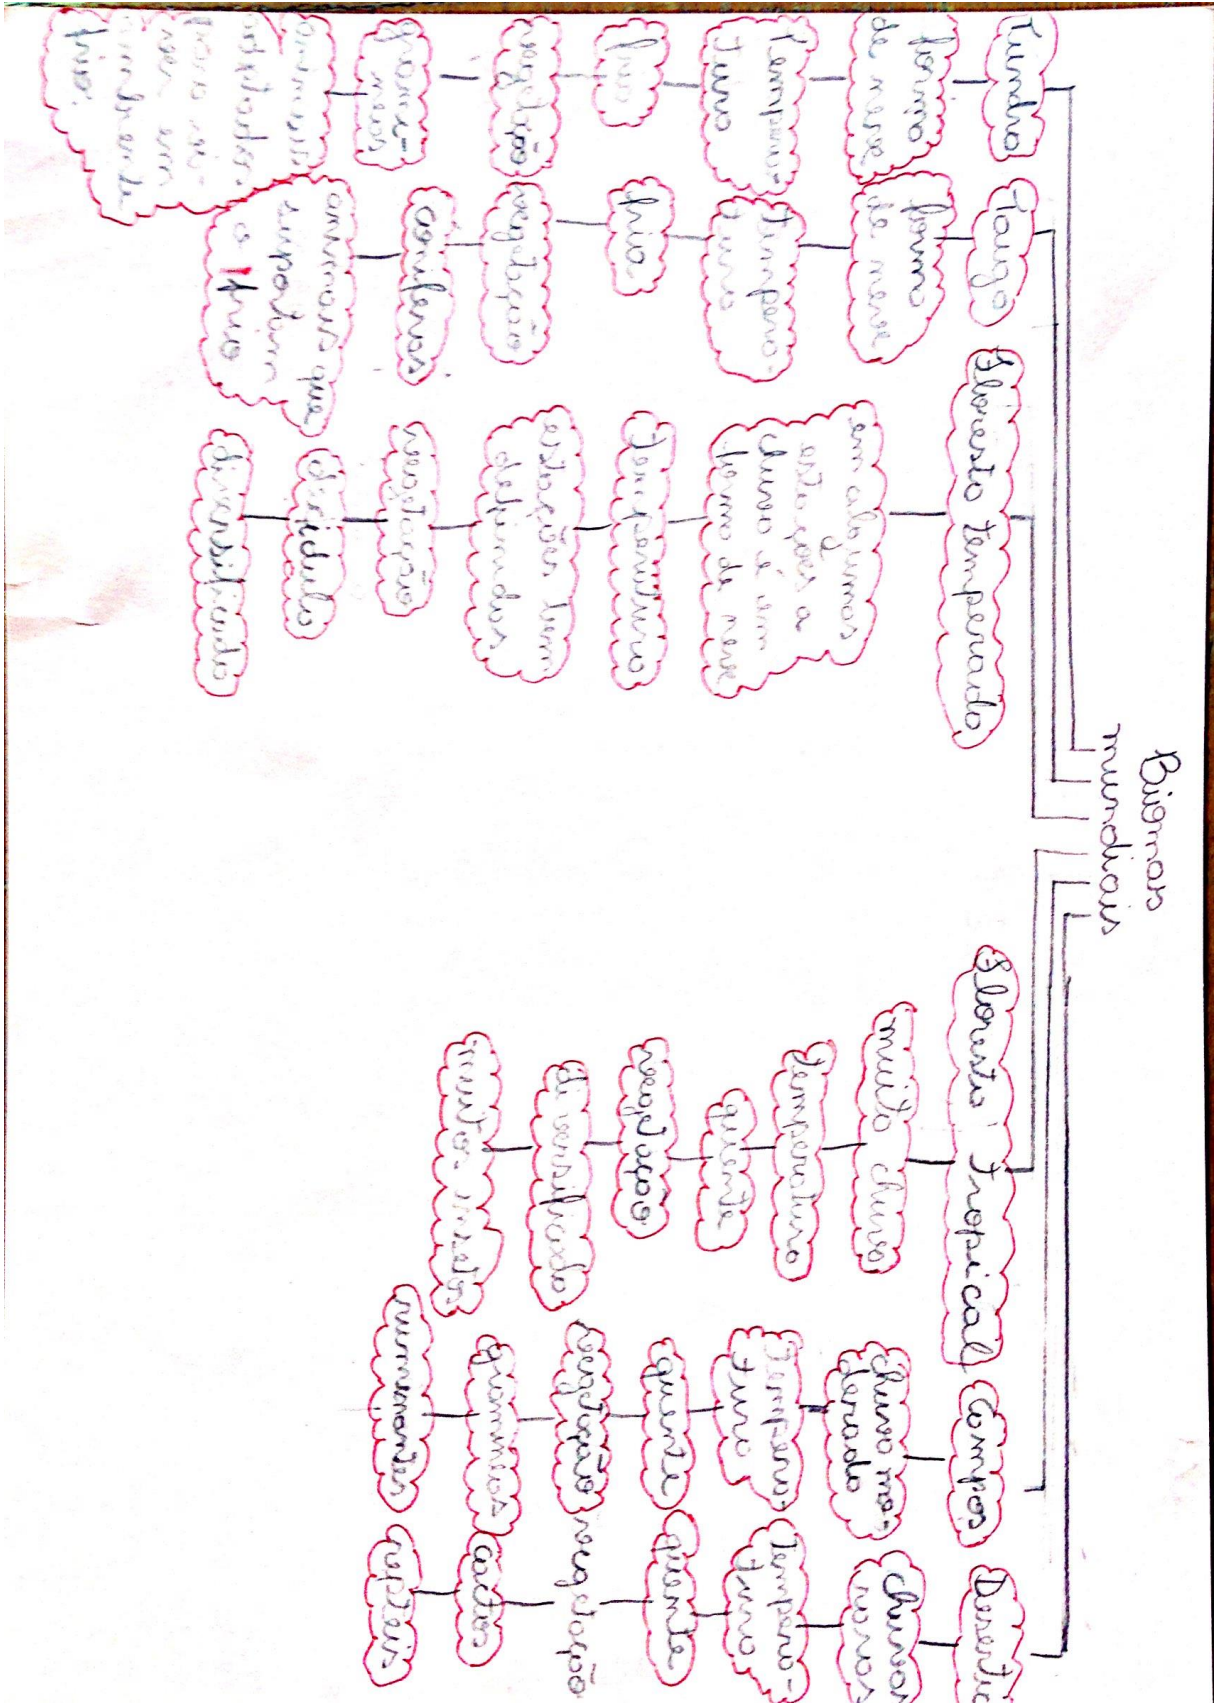 Biomas
mundiais
Tundra
forma
de neve
tempera-
tura
frio
vegetação
gramí-
neas
animais
adaptados
para vi-
ver em
ambiente
frio.
Taiga
forma
de neve
tempera-
tura
frio
vegetação
coníferas
animais que
suportam
o frio
Floresta temperada
em algumas
estações a
chuva é em
forma de neve
temperatura
estações bem
definidas
vegetação
decídula
diversificada
Floresta tropical
muita chuva
temperatura
quente
vegetação
diversificada
muitos insetos
Campos
chuva mo-
derada
Tempera-
tura
quente
vegetação
gramíneas
ruminantes
Deserto
chuvas
raras
tempera-
tura
quente
vegetação
cactos
repteis